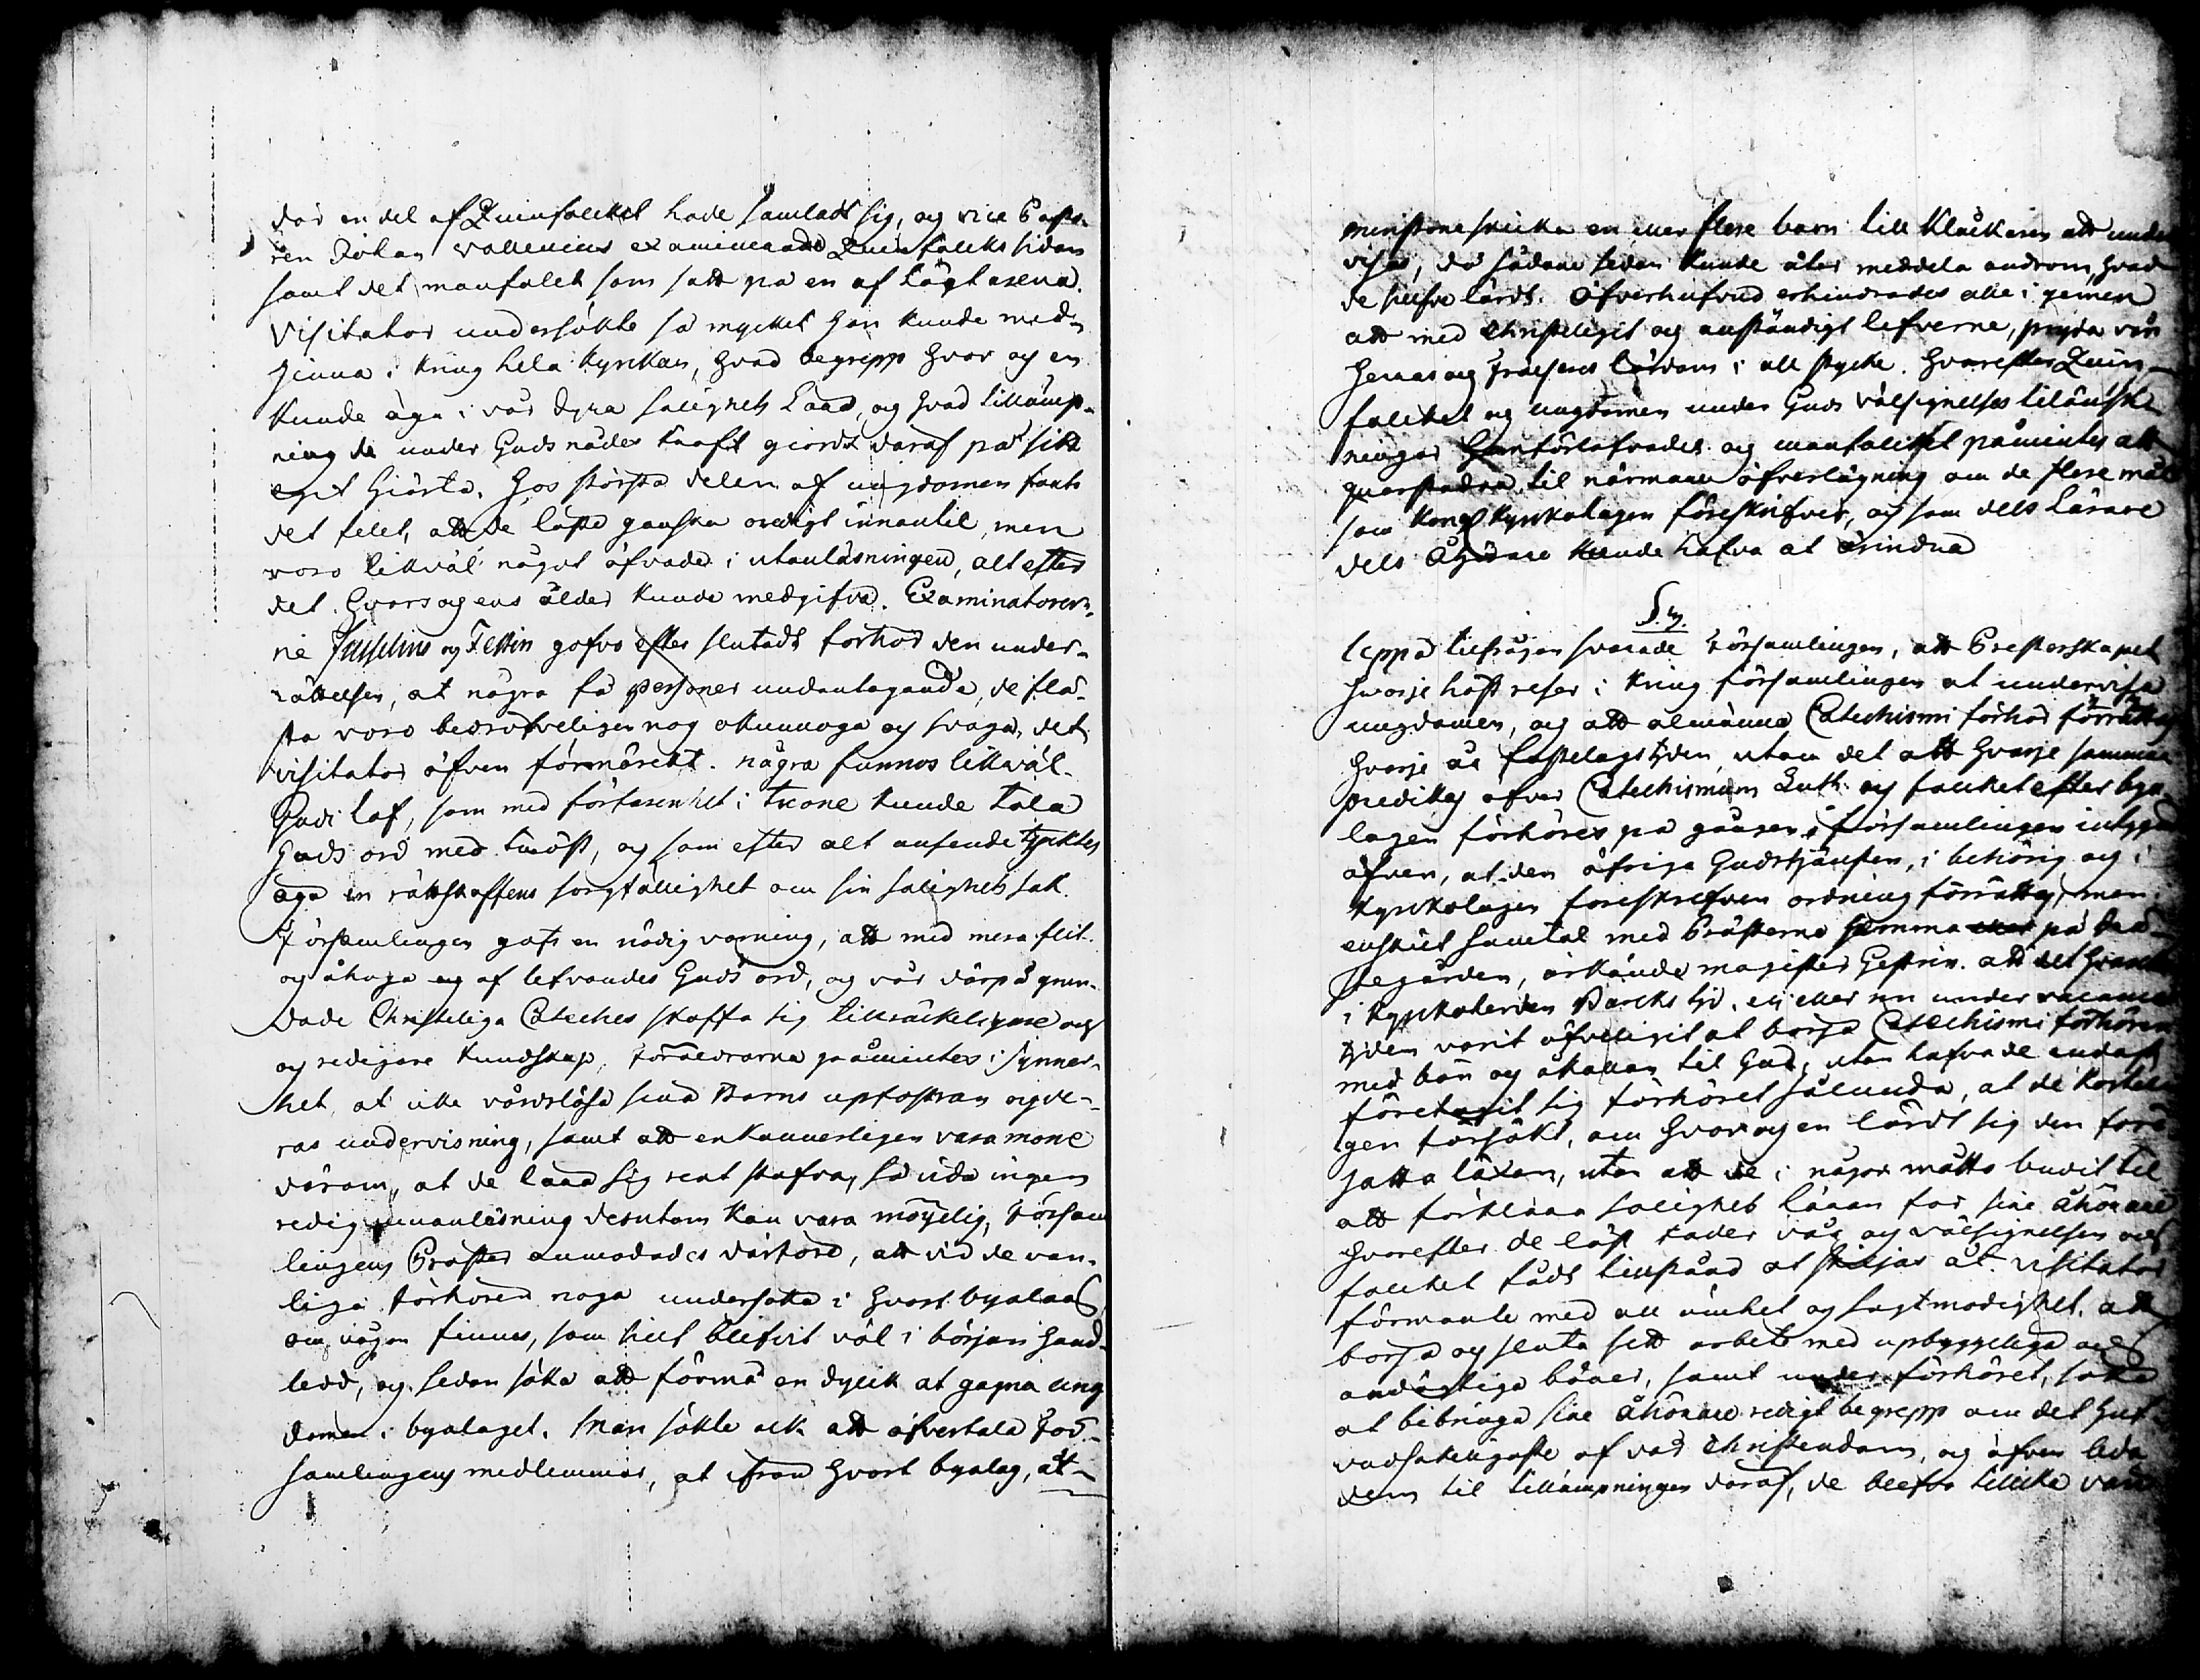 där en del af Quinfolcket hade samladt sig, og vice Pasto-
ren Johan Wallenius examinerade Quinfolcks sidan
samt det manfolck som satt på en af Lägtarena.
Visitator undersökte så mycket han kunde med-
hinna i kring hela Kyrkan, hvad begrepp hvar og en
kunde äga i vår dyra salighets Lära, og hvad tillämp-
ning de under Guds nådes kraft giordt däraf på sitt
eget Hiärta. Hos största delen af ungdomen fants
det felet, att de läste ganska oredigt innantil, men
voro likväl något öfvade i utanläsningen, alt efter
det hvars og ens ålder kunde medgifva. Examinatorer-
ne og gofvo efter slutadt förhör den under-
rättelsen, at några få personer undantagande, de flä-
sta voro bedröfveligen nog okunnoga og svaga, det
visitator äfven förmärckt. några funnos likväl
Gudi lof, som med förfarenhet i trone kunde tala
Guds ord med tröst, og som efter alt anseende tycktes
äga en rättskaffens sorgfällighet om sin salighets sak.
Församlingen gafs en nödig varning, att med mera flit
og åhuga af lefvandes Guds ord, og vår därpå grun-
dade Christeliga Cateches skaffa sig tillräckeligare
og redigare kundskap, föräldrarna påmintes i synner-
het, at icke vårdslösa sina Barns upfostran og de-
ras undervisning, samt att enkannerligen vara mone
därom, at de lära sig rent stafva, så vida ingen
redig innanläsning desutom kan vara möyelig, Försam
lingens Präster anmodades därföre, att vid de van-
liga förhören noga undersöka i hvart byalag
om någon finnes, som sielf blefvit väl i början hand-
ledd, og sedan söka att förmå en dylik at gagna ung
domen i byalaget. Man sökte ock att öfvertala För-
samlingens medlemmar, at ifrån hvart byalag, åt-
minstone skicka en eller flere barn till Klåckaren att under
visas, då sådane sedan kunde åter meddela androm, hvad
de sielfve lärdt. Öfverhufvud erhindrades alle i gemen
att med Christeligit og anständigt lefverne, pryda vår
Herras og Frälsares lärdom i all stycke. Hvarefter Quin-
folcket og ungdomen under Guds välsignelses tilönsk-
ningar hemförlofvades og manfolcket påmintes att
quarstadna, til närmare öfverlägning om de flere mål
som Kongl Kyrkolagen föreskrifver, og som dels Lärare
dels Åhörare kunde hafva at ärindra
§. 4.
Uppå tilfrågan svarade Församlingen, att Presterskapet
hvarje höst reser i kring församlingen at undervisa
ungdomen, og att almänna Catechismi förhör förrättas
hvarje år fastelagstiden, utom det att hvarje sommar
predikas öfver Catechismum Luth: og folcket efter bya-
lagen förhöres på gången, församlingen intygade
äfven, at den öfriga Gudstjänsten, i behörig og i
Kyrkolagen föreskrefven ordning förrättas, men
enskilt samtal med Prästerna hemma på Prä-
stegården, ärkände magister Gestrin. att det hvarken
i Kyrkoherden Barcks tid, ej eller nu under vacance
tiden varit öfveligit at börja Catechismi förhören
med bön og åkallan til Gud, utan hafva de endast
företagit sig förhöret sålunda, at de korteli-
gen försökt, om hvar og en lärdt sig den före-
satta läxan, utan att de i någor måtto budit til
att förklara salighets läran för sine åhörare
hvarefter de läst Fader vår og välsignelsen och
folcket fådt tillstånd at skiljas åt. Visitator
förmante med all ömhet og sagtmodighet, att
börja og sluta sitt arbete med upbyggeliga og
andägtiga böner, samt under förhöret, söka
at bibringa sine åhörare redigt begrepp om det huf-
vudsakeligaste af vår Christendom, og äfven leda
dem til tillämpningen däraf, de blefvo tillika var-